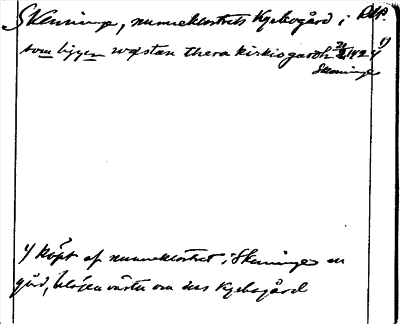 Skeninge, nunneklostrets kyrkogård i
som ligger wæstan thera kirkiogardh 1424 1)
Skeninge
1) köpt af nunneklostret i Skeninge en
gård, belägen väster om dess kyrkogård